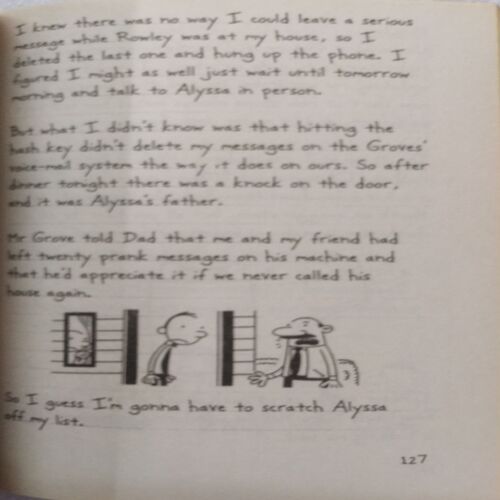 I knew there was no way I could leave a serious
message while Rowley was at my house, so I
deleted the last one and hung up the phone. I
figured I might as well just wait until tomorrow
morning and talk to Alyssa in person.
But what I didn't know was that hitting the
hash key didn't delete my messages on the Groves'
voice-mail system the way it does on ours. So after
dinner tonight there was a knock on the door,
and it was Alyssa's father.
Mr Grove told Dad that me and my friend had
left twenty prank messages on his machine and
that he'd appreciate it if we never called his
house again.
So I guess I'm gonna have to scratch Alyssa
off my list.
127